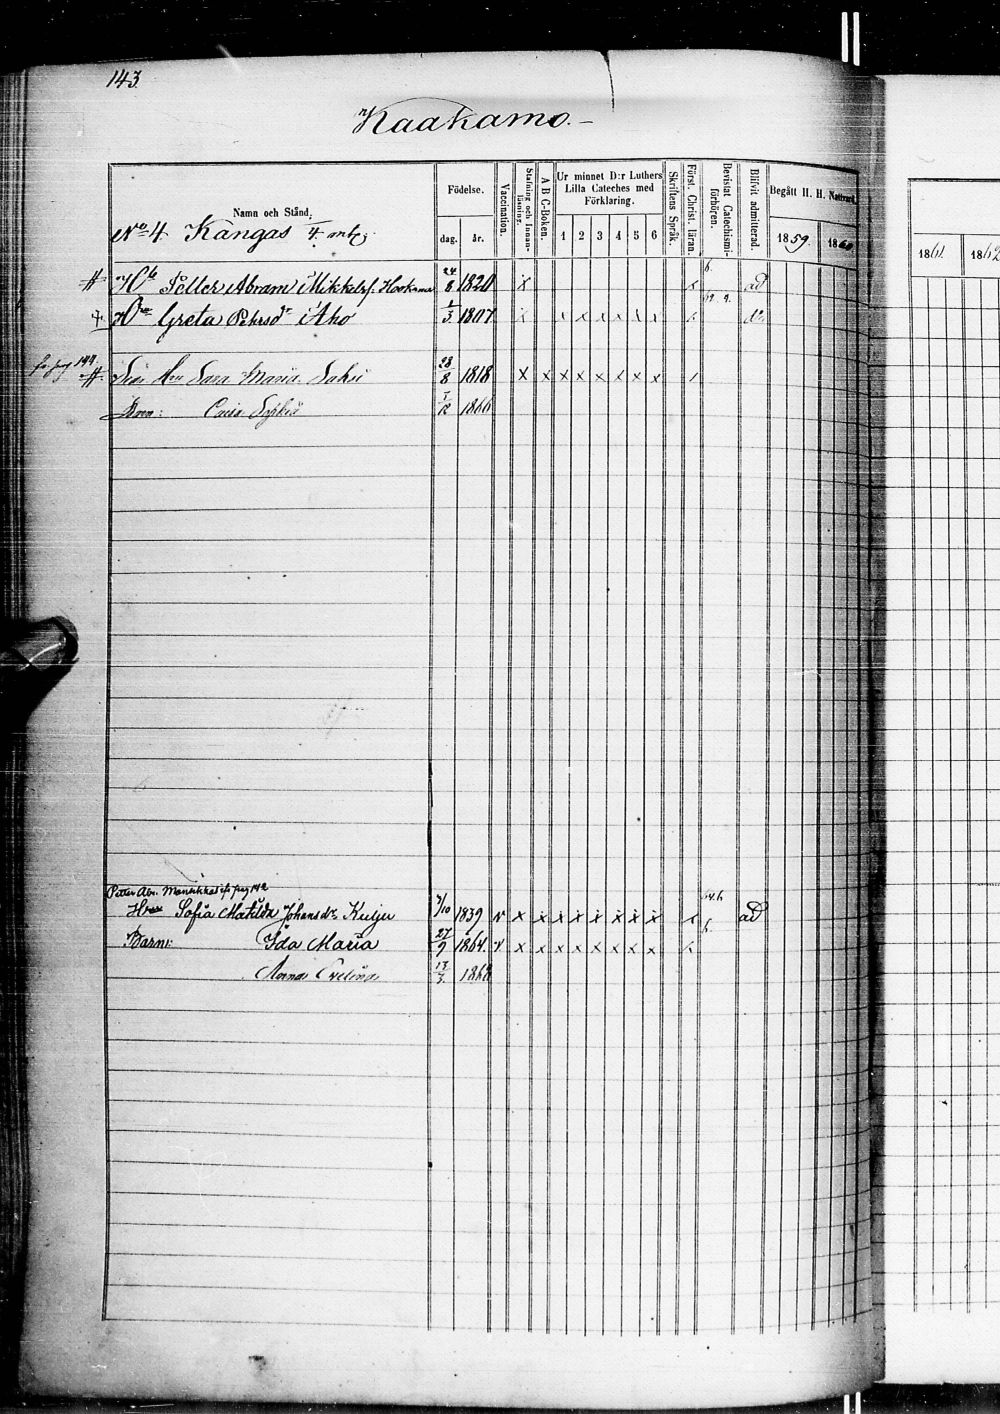 143.
Kaakamo.
Namn och Stånd.
Födelse.
dag. år.
Vaccination.
Stafning och Innanläsning.
A B C-Boken.
Ur minnet D:r Luthers Lilla Cateches med Förklaring.
1 2 3 4 5 6
Skriftens Språk.
Först. Christ. läran.
Bevistat Catechismiförhören.
Blifvit admitterad.
Begått H. H. Nattvard.
1859. 1860
1861. 1862
No 4 Kangas
Abram Mikkelsf. 24/8 1820 x x ad
Greta Pehrsdr Aho 1/3 1807 x x x x x x x
144.
Sara Maria 23/8 1818 x x x x x x x x
Barn: Sofia 1/12 1866
Petter Abr. pag 142
Sofia Matilda Johansdr Kuljo 7/10 1839 v x x x x x x x x x ad
Barn: Ida Maria 27/9 1864. v x x x x x x x x
Anna Evelina 13/3 1868